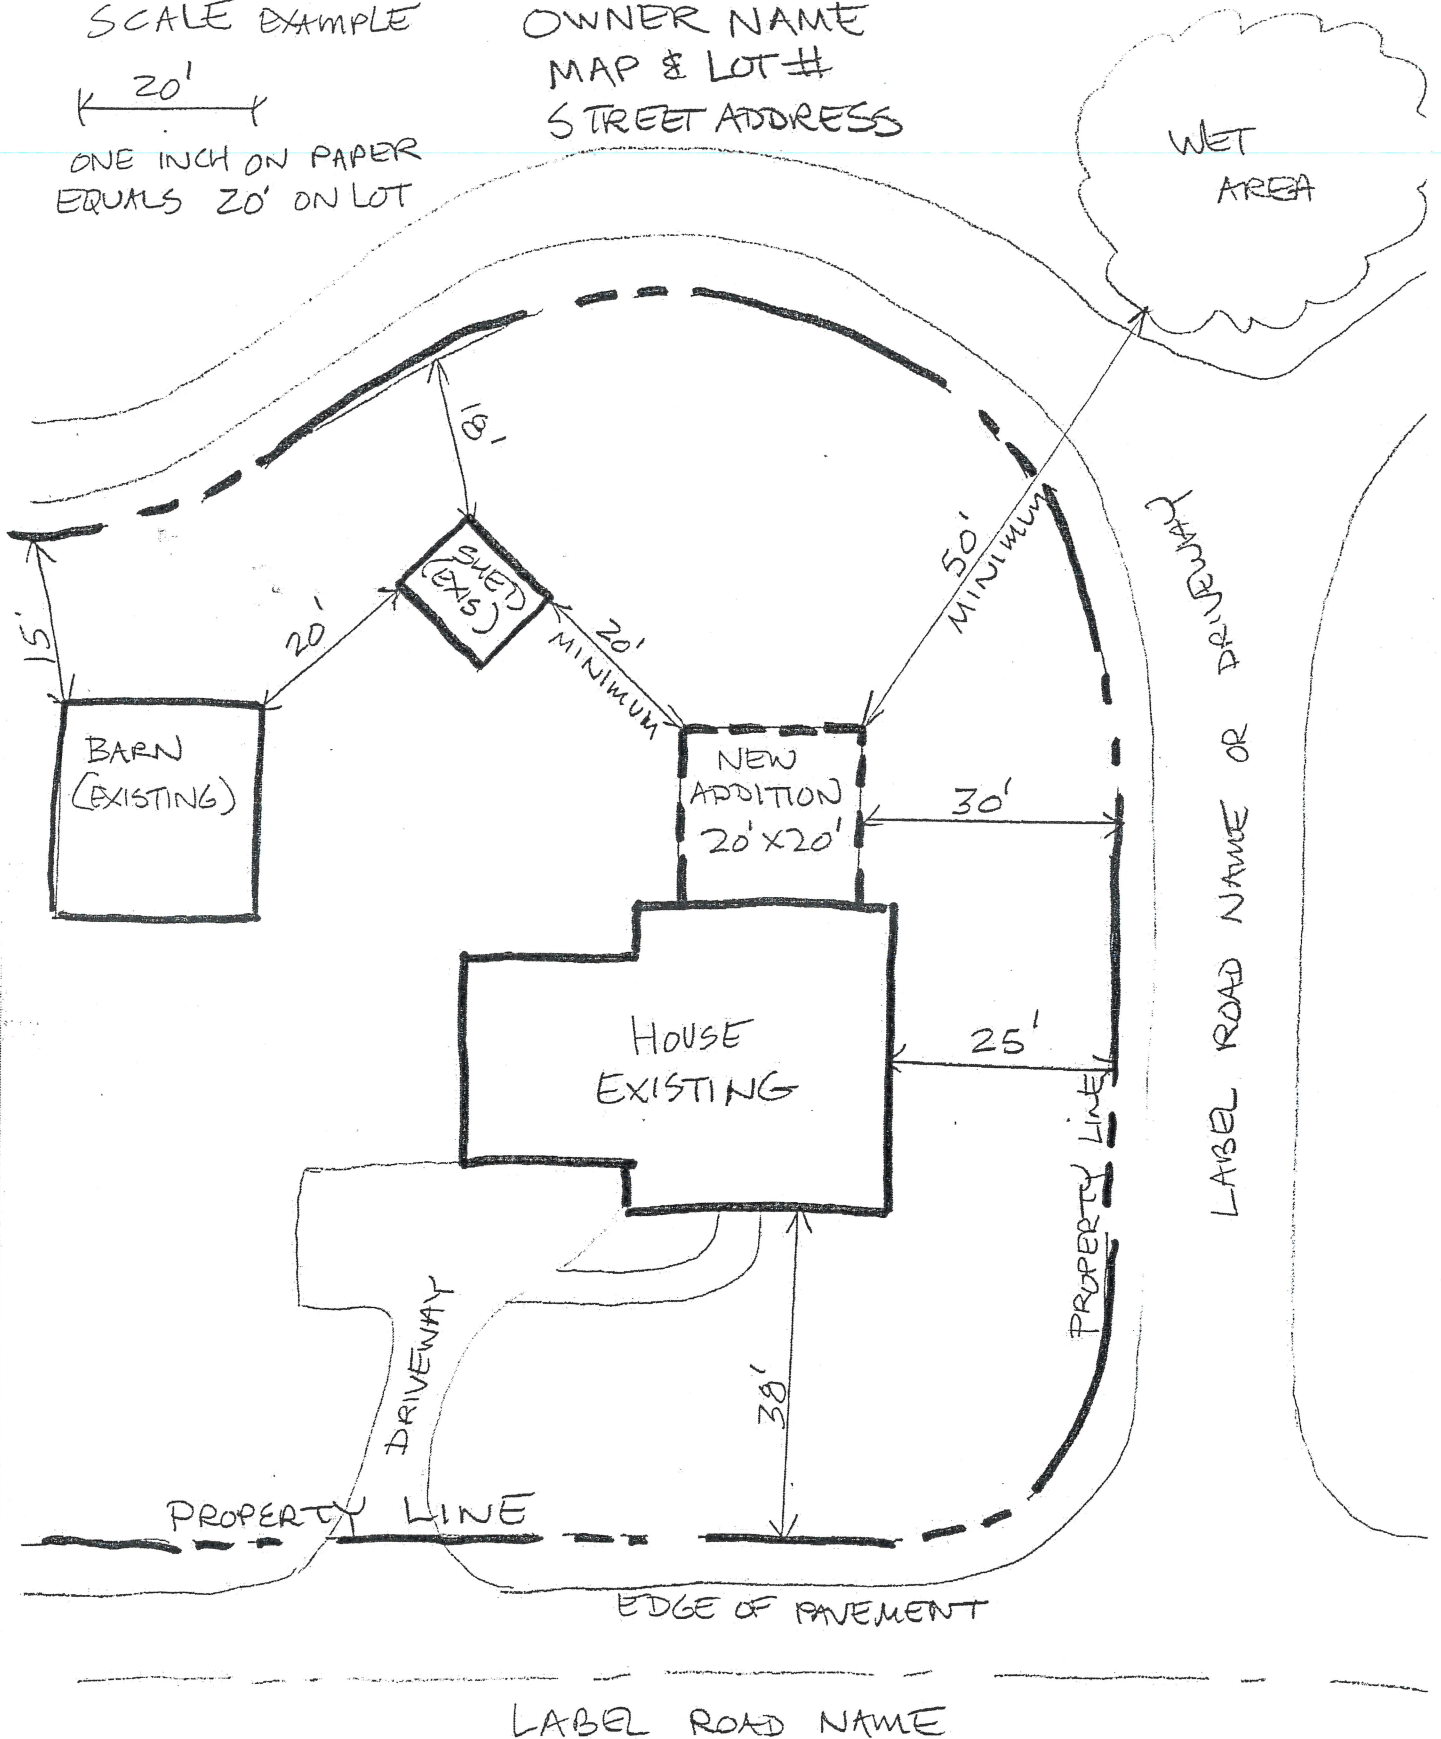 SCALE EXAMPLE
20'
ONE INCH ON PAPER
EQUALS 20' ON LOT
OWNER NAME
MAP & LOT #
STREET ADDRESS
WET
AREA
18'
15'
20'
SHED
(EXIS)
20'
MINIMUM
50'
MINIMUM
BARN
(EXISTING)
NEW
ADDITION
20'X20'
30'
25'
HOUSE
EXISTING
38'
PROPERTY LINE
LABEL ROAD NAME OR DRIVEWAY
DRIVEWAY
PROPERTY LINE
EDGE OF PAVEMENT
LABEL ROAD NAME